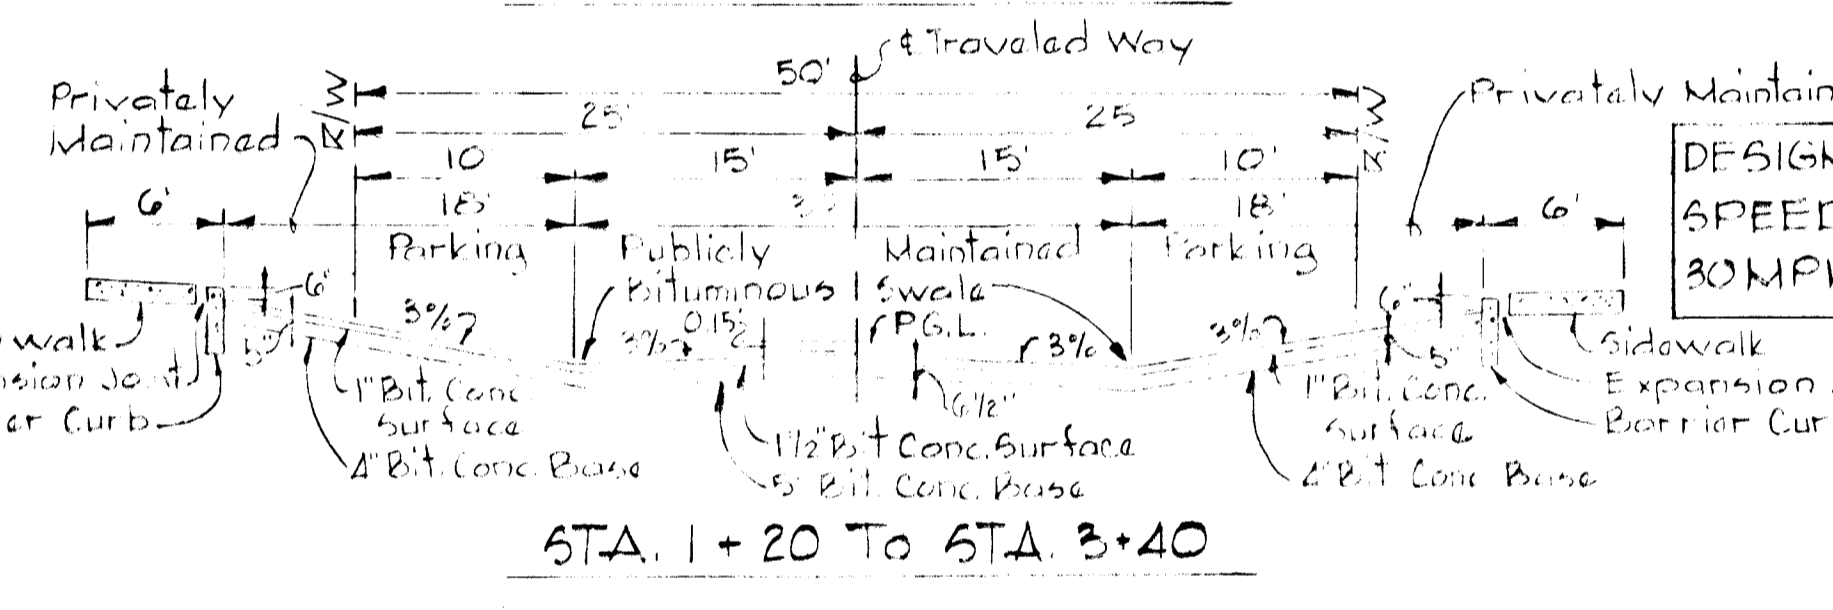 ℄ Traveled Way
50'
Privately
Maintained
R/W
25'
25
R/W
Privately Maintain
10
15'
15'
10'
6'
18'
18'
6'
DESIGN
SPEED
30 MPH
Parking
Publicly
Maintained
Parking
Bituminous
Swale
6"
3%
3%
0.15'
P.G.L.
3%
3%
6"
walk
nsion Joint
er Curb
5"
1" Bit. Conc.
Surface
4" Bit. Conc. Base
6 1/2"
1 1/2" Bit Conc. Surface
5" Bit. Conc. Base
5"
1" Bit. Conc.
Surface
4" Bit Conc Base
Sidewalk
Expansion
Barrier Cur
STA. 1+20 To STA. 3+40